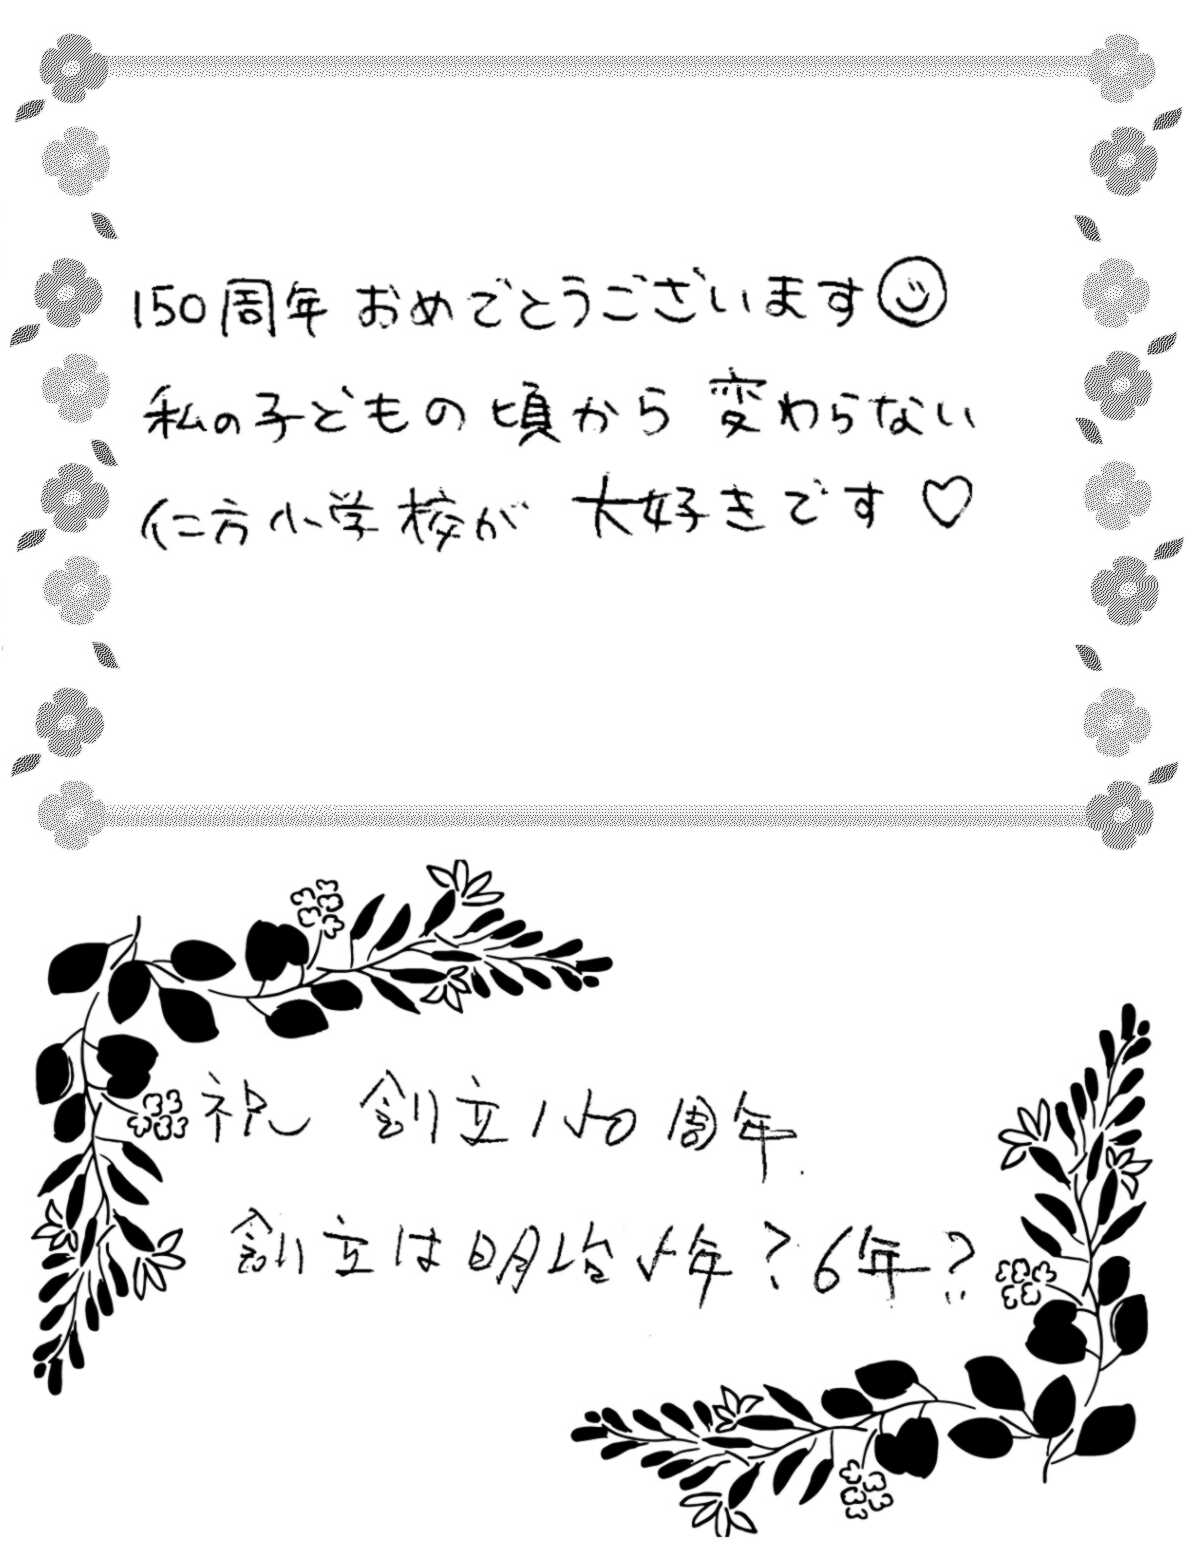 150周年 おめでとうございます☺
私の子どもの頃から 変わらない
仁方小学校が 大好きです♡
祝 創立150周年.
創立は明治5年?6年?